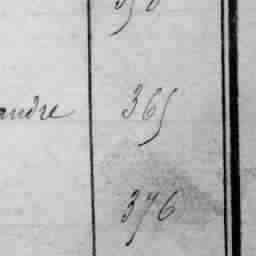 andre 365
376